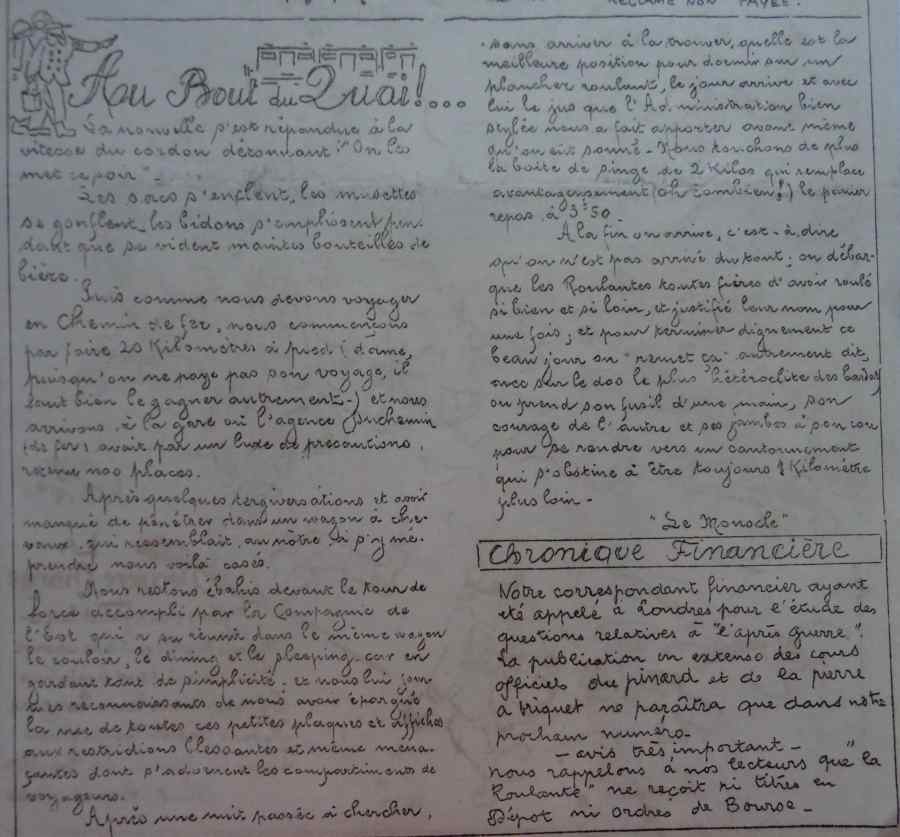 RECLAME NON PAYÉE.
Au Bout du Quai!...
La nouvelle s'est répandue à la
vitesse du cordon détonnant: "On les
met ce soir".
Les sacs s'enflent, les musettes
se gonflent, les bidons s'emplissent pen-
dant que se vident maintes bouteilles de
bière.
Puis comme nous devons voyager
en Chemin de fer, nous commençons
par faire 20 Kilomètres à pied (dame,
puisqu'on ne paye pas son voyage, il
faut bien le gagner autrement-) et nous
arrivons à la gare où l'agence Duchemin
(de fer) avait par un luxe de précautions,
retenu nos places.
Après quelques tergiversations et avoir
manqué de pénétrer dans un wagon à che-
vaux, qui ressemblait au nôtre à s'y mé-
prendre nous voilà casés.
Nous restons ébahis devant le tour de
force accompli par la Compagnie de
l'Est qui a su réunir dans le même wagon
le couloir, le dining et le sleeping-car en
gardant tant de simplicité - et nous lui som-
mes reconnaissants de nous avoir épargné
la vue de toutes ces petites plaques et affiches
aux restrictions blessantes et même mena-
çantes dont s'adornent les compartiments de
voyageurs.
Après une nuit passée à chercher,
sans arriver à la trouver, quelle est la
meilleure position pour dormir sur un
plancher roulant, le jour arrive et avec
lui le jus que l'Administration bien
stylée nous a fait apporter avant même
qu'on eit sonné - Nous touchons de plus
la boite de singe de 2 Kilos qui remplace
avantageusement (oh combien!) le panier
repas à 3f50 -
A la fin on arrive, c'est-à-dire
qu'on n'est pas arrivé du tout; on débar-
que les Roulantes toutes fières d'avoir roulé
si bien et si loin, et justifié leur nom pour
une fois; et pour terminer dignement ce
beau jour on "remet ça" autrement dit,
avec sur le dos le plus hétéroclite des bardas
on prend son fusil d'une main, son
courage de l'autre et ses jambes à son cou
pour se rendre vers un cantonnement
qui s'obstine à être toujours 1 Kilomètre
plus loin -
"Le Monocle"
Chronique Financière
Notre correspondant financier ayant
été appelé à Londres pour l'étude des
questions relatives à "l'après guerre".
La publication in extenso des cours
officiels du pinard et de la pierre
à briquet ne paraîtra que dans notre
prochain numéro -
- avis très important -
nous rappelons à nos lecteurs que "la
Roulante" ne reçoit ni titres en
Dépot ni ordres de Bourse -